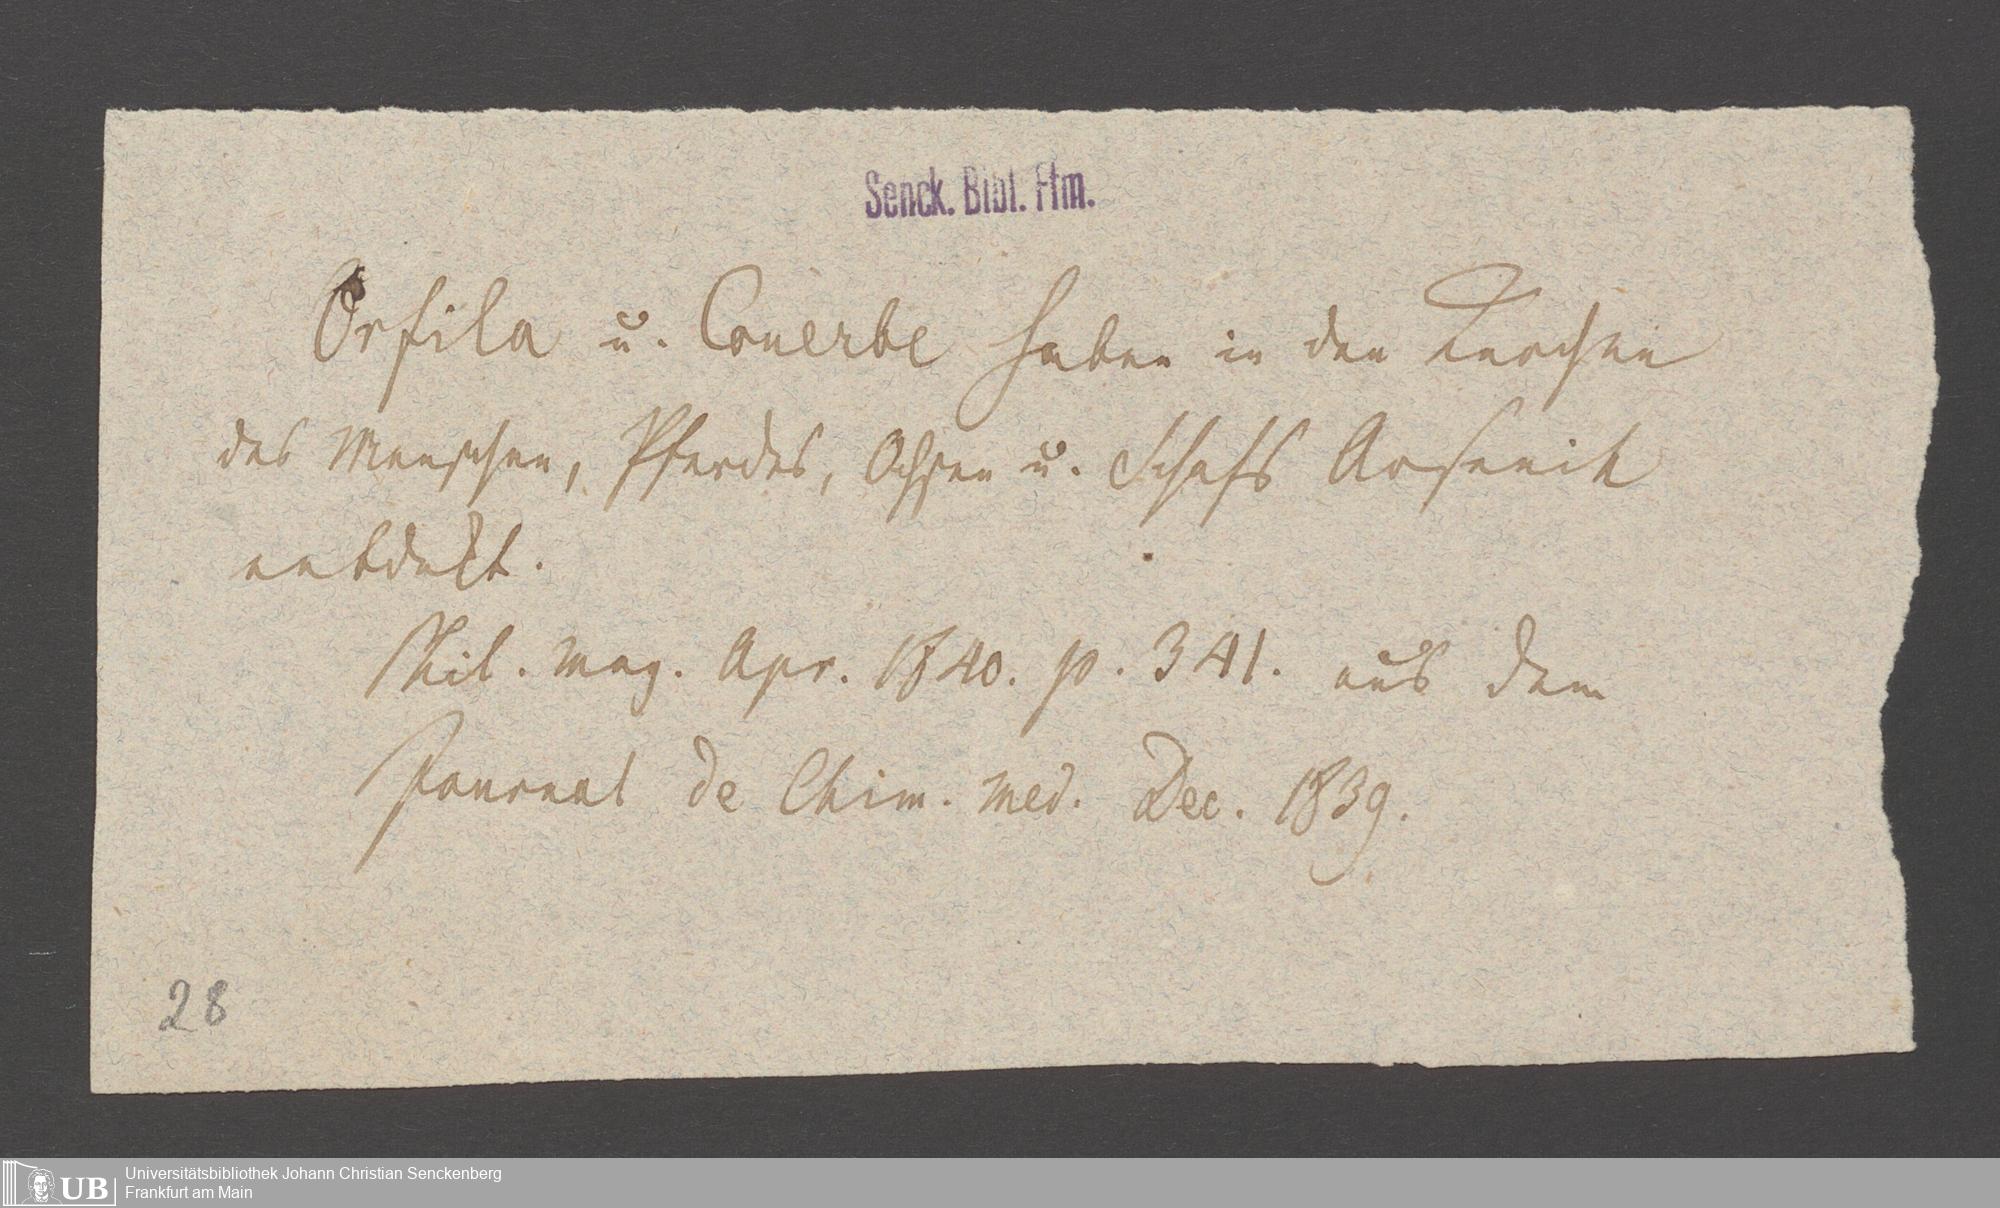 Senck. Bibl. Ffm.
Orfila u. Couerbe haben in den Knochen
des Menschen, Pferdes, Ochsen u. Schafs Arsenik
entdekt.
Phil. Mag. Apr. 1840. p. 341. aus dem
Journal de Chim. med. Dec. 1839.
28
UB
Universitätsbibliothek Johann Christian Senckenberg
Frankfurt am Main